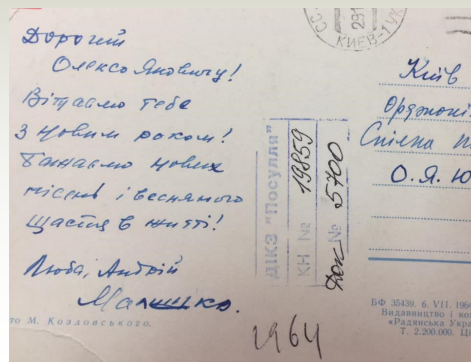 Дорогий
Олексо Яновичу!
Вітаємо тебе
з Новим роком!
Бажаємо нових
пісень і весняного
щастя в житті!
Люба, Андрій
Малишко.
то М. Козловського.
1964
ДІКЗ "Посулля"
КН № 19859
Док № 5700
КИЕВ-1 УК
Київ
Орджонікі
Спілка
О.Я. Ю
БФ 35439. 6. VII. 196
Видавництво і ко
«Радянська Укра
Т. 2.200.000. Ц